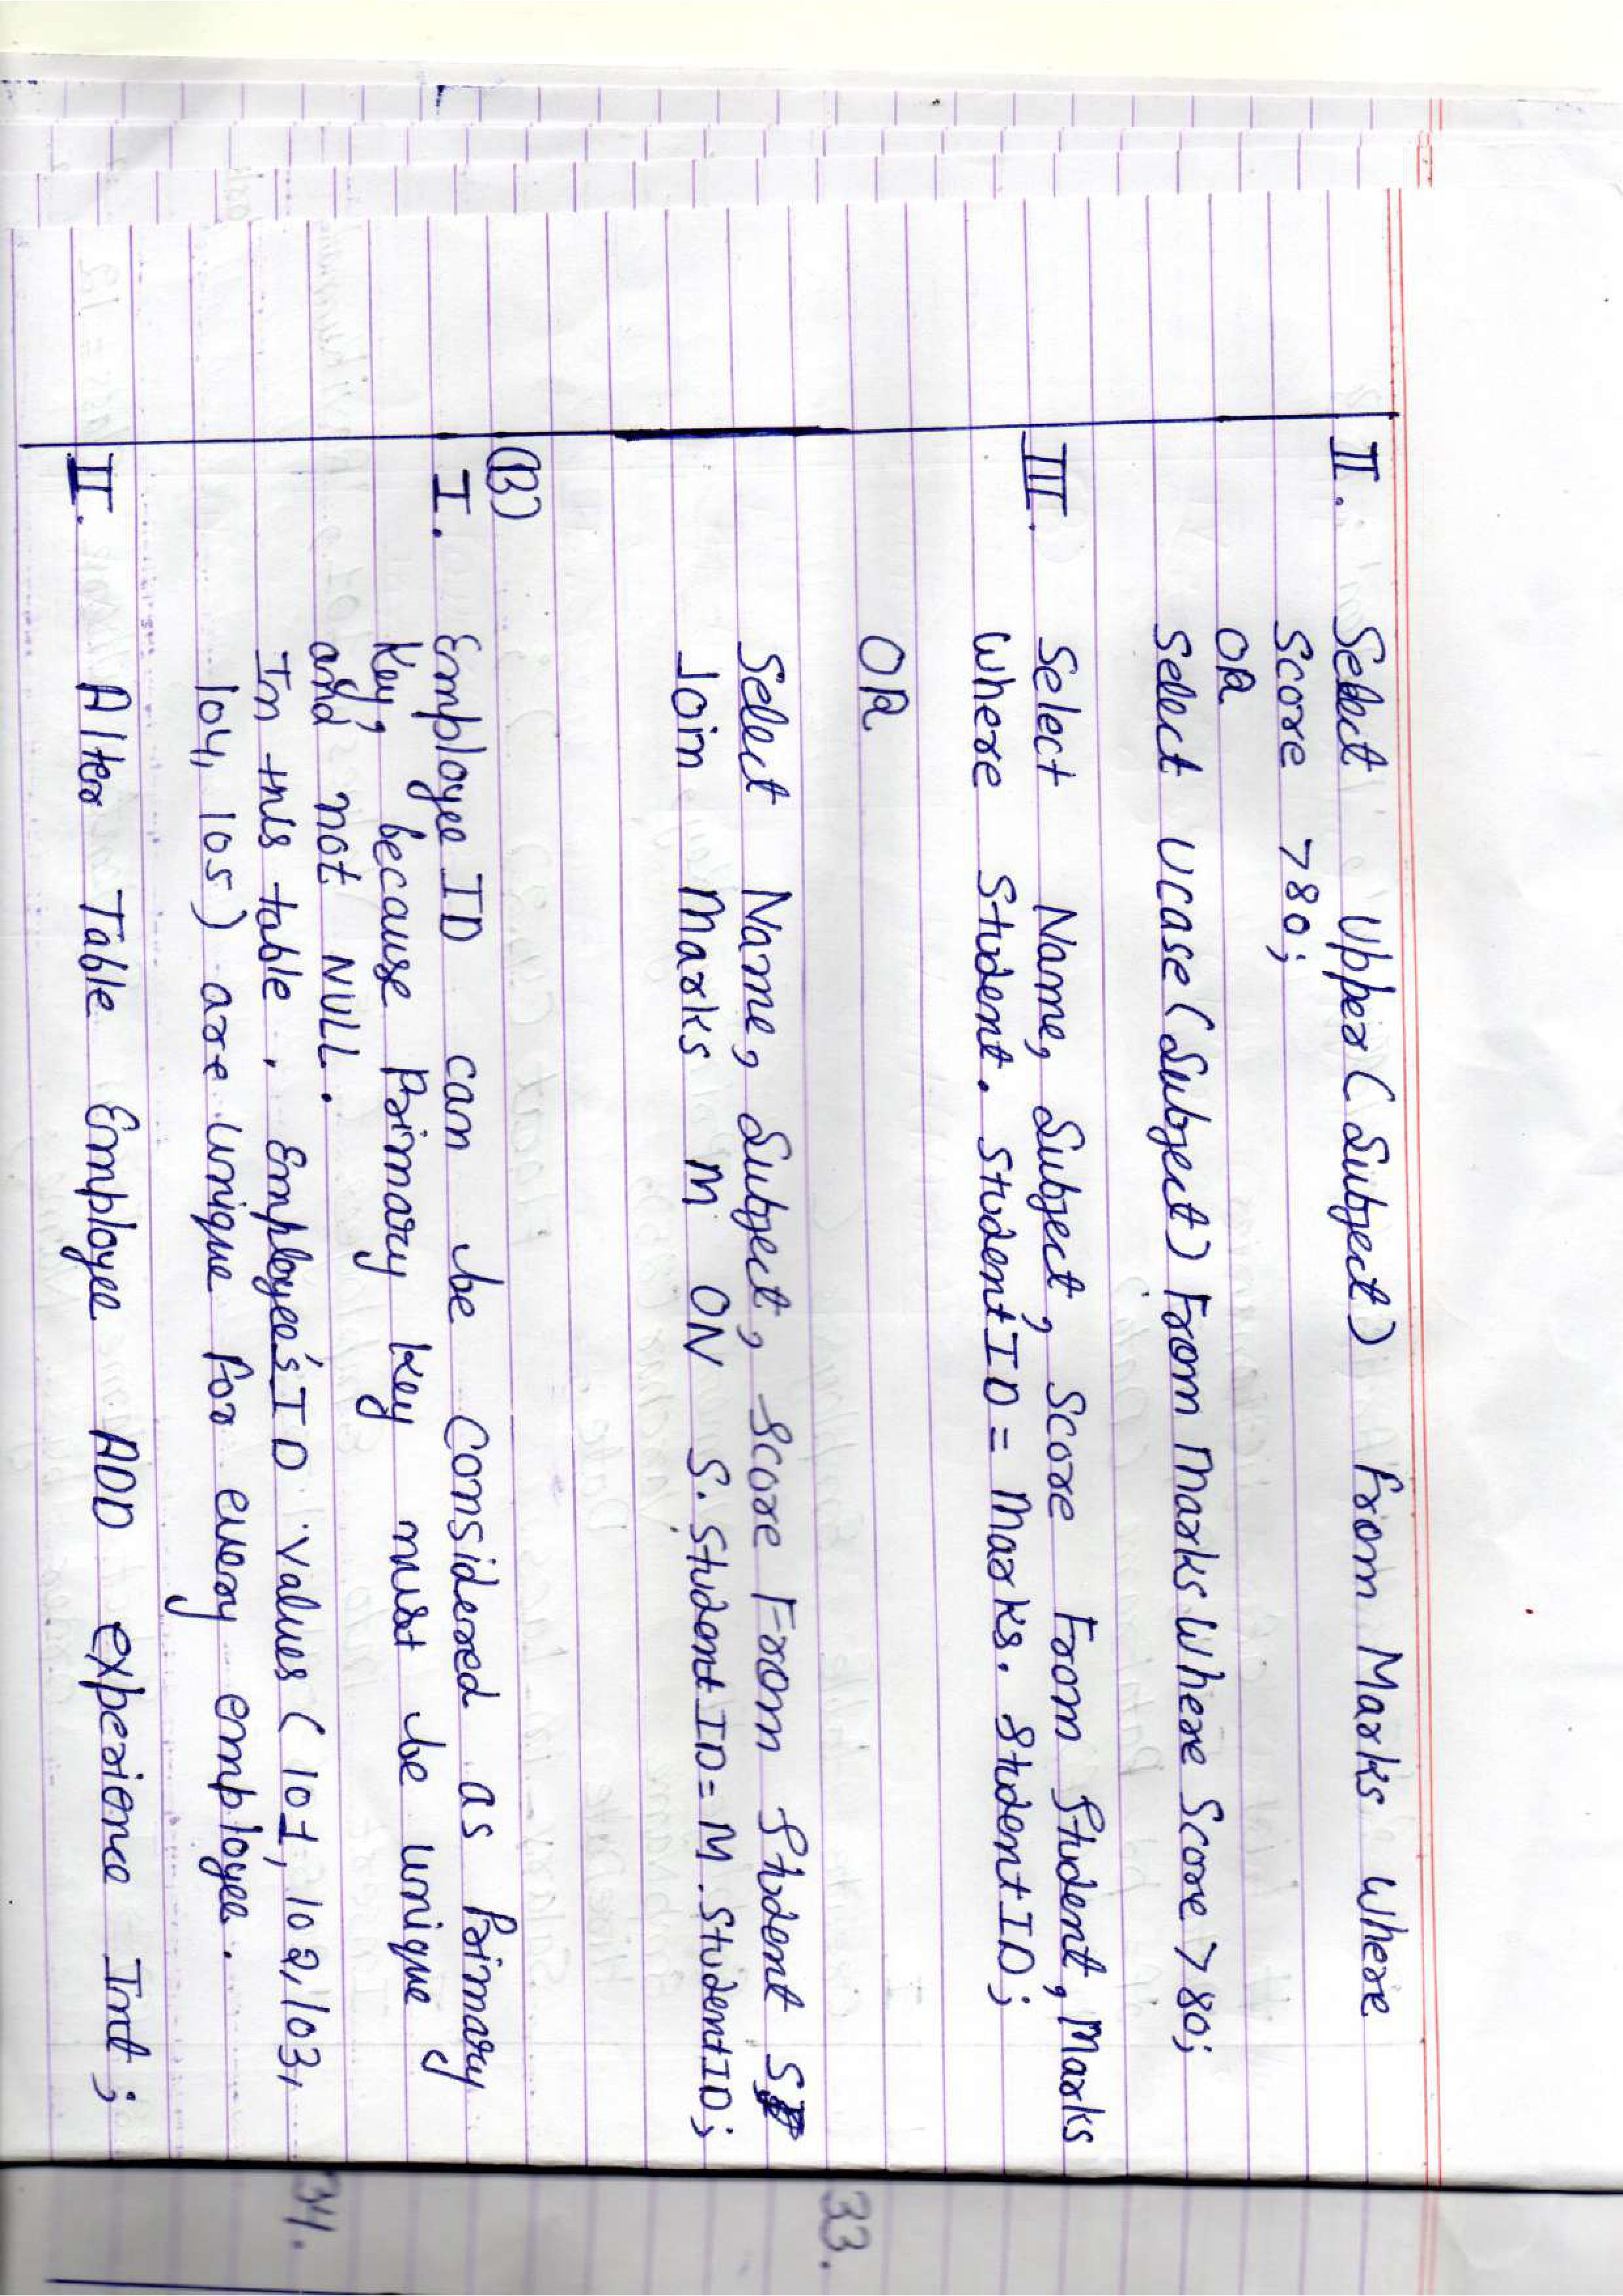 II. Select Upper (Subject) From Marks Where
Score >80;
OR
Select Ucase (Subject) From Marks Where Score > 80;
III. Select Name, Subject, Score From Student, Marks
Where Student. StudentID = Marks. StudentID;
OR
Select Name, Subject, Score From Student S
Join Marks M ON S. StudentID = M. StudentID;
33.
(B)
I. Employee ID can be considered as Primary
Key, because Primary Key must be unique
and not NULL.
In this table. Employee's ID Values ( 101, 102, 103,
34.
104, 105) are unique for every employee.
II. Alter Table Employee ADD experience Int;